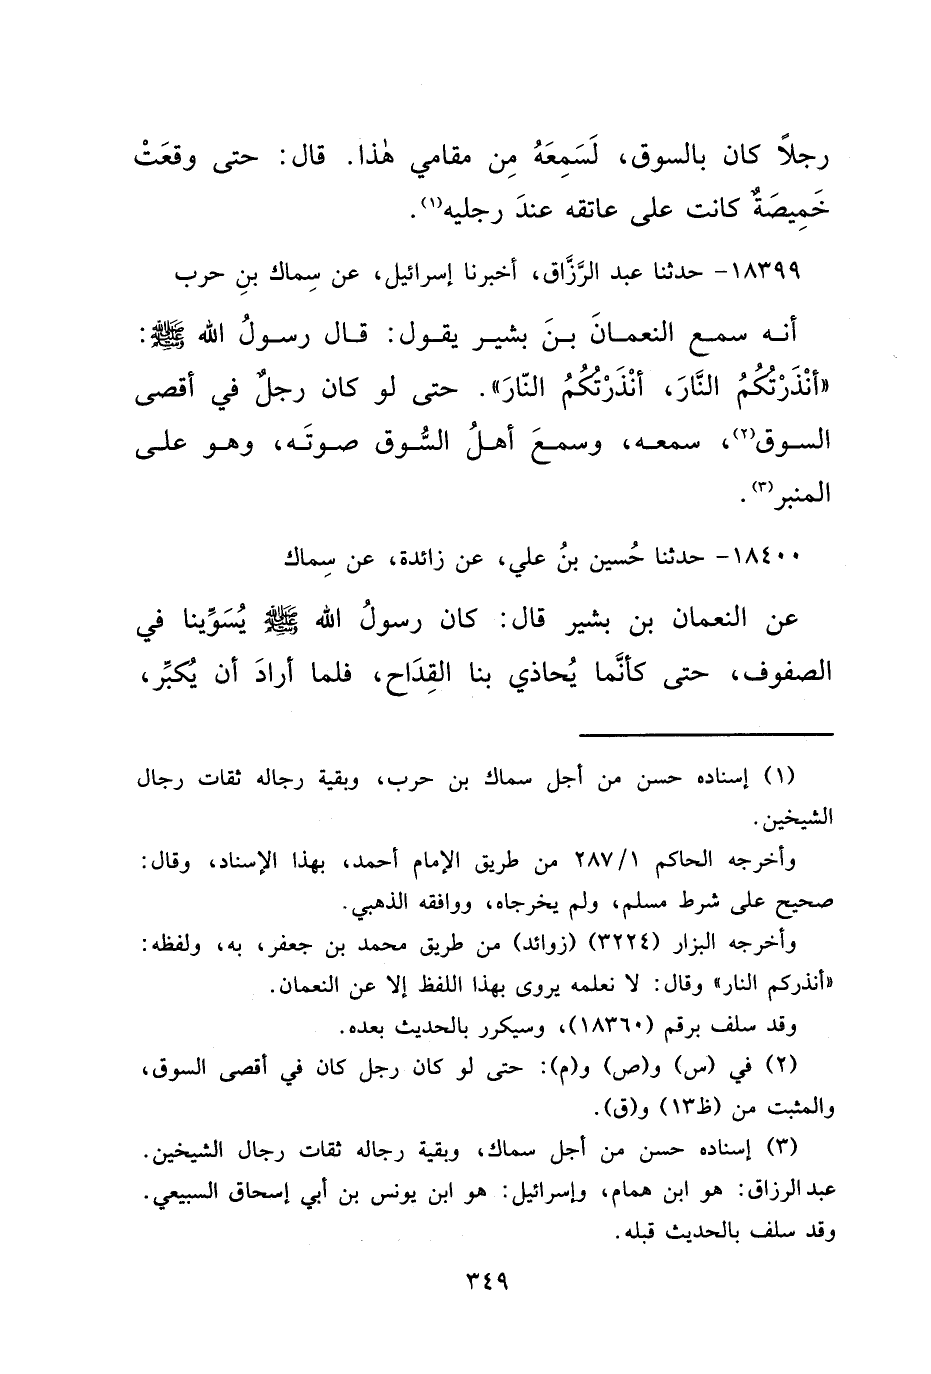 رجلاً كان بالسوق، لَسَمِعَهُ مِن مقامي هٰذا. قال: حتى وقعَتْ
خَمِيصَةٌ كانت على عاتقه عندَ رجليه(١).
١٨٣٩٩- حدثنا عبد الرَّزَّاق، أخبرنا إسرائيل، عن سِماك بنِ حرب
أنه سمع النعمانَ بنَ بشير يقول: قال رسولُ الله ﷺ:
«أنْذَرْتُكُمُ النَّارَ، أنْذَرْتُكُمُ النّارَ». حتى لو كان رجلٌ في أقصى
السوق(٢)، سمعه، وسمعَ أهلُ السُّوق صوتَه، وهو على
المنبر(٣).
١٨٤٠٠- حدثنا حُسين بنُ علي، عن زائدة، عن سِماك
عن النعمان بن بشير قال: كان رسولُ الله ﷺ يُسَوِّينا في
الصفوف، حتى كأنَّما يُحاذي بنا القِدَاح، فلما أرادَ أن يُكبِّر،
(١) إسناده حسن من أجل سماك بن حرب، وبقية رجاله ثقات رجال
الشيخين.
وأخرجه الحاكم ٢٨٧/١ من طريق الإمام أحمد، بهذا الإسناد، وقال:
صحيح على شرط مسلم، ولم يخرجاه، ووافقه الذهبي.
وأخرجه البزار (٣٢٢٤) (زوائد) من طريق محمد بن جعفر، به، ولفظه:
«أنذركم النار» وقال: لا نعلمه يروى بهذا اللفظ إلا عن النعمان.
وقد سلف برقم (١٨٣٦٠)، وسيكرر بالحديث بعده.
(٢) في (س) و(ص) و(م): حتى لو كان رجل كان في أقصى السوق،
والمثبت من (ظ١٣) و(ق).
(٣) إسناده حسن من أجل سماك، وبقية رجاله ثقات رجال الشيخين.
عبد الرزاق: هو ابن همام، وإسرائيل: هو ابن يونس بن أبي إسحاق السبيعي.
وقد سلف بالحديث قبله.
٣٤٩